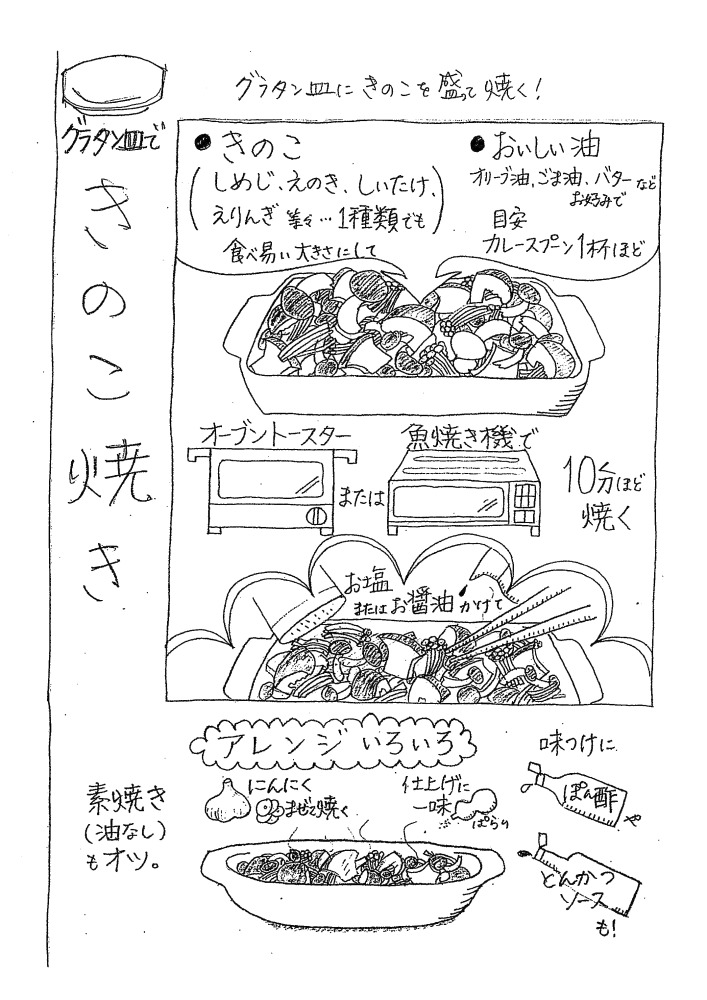 グラタン皿にきのこを盛って焼く!
グラタン皿で
きのこ焼き
●きのこ
(しめじ、えのき、しいたけ、
えりんぎ 等々…1種類でも)
食べ易い大きさにして
●おいしい油
オリーブ油、ごま油、バターなど
お好みで
目安
カレースプーン1杯ほど
オーブントースター
または
魚焼き機で
10分ほど
焼く
お塩
またはお醤油かけて
アレンジいろいろ
素焼き
(油なし)
もオツ。
にんにく
まぜて焼く
仕上げに
一味
ぱらり
味つけに
ぽん酢
や
とんかつ
ソース
も!